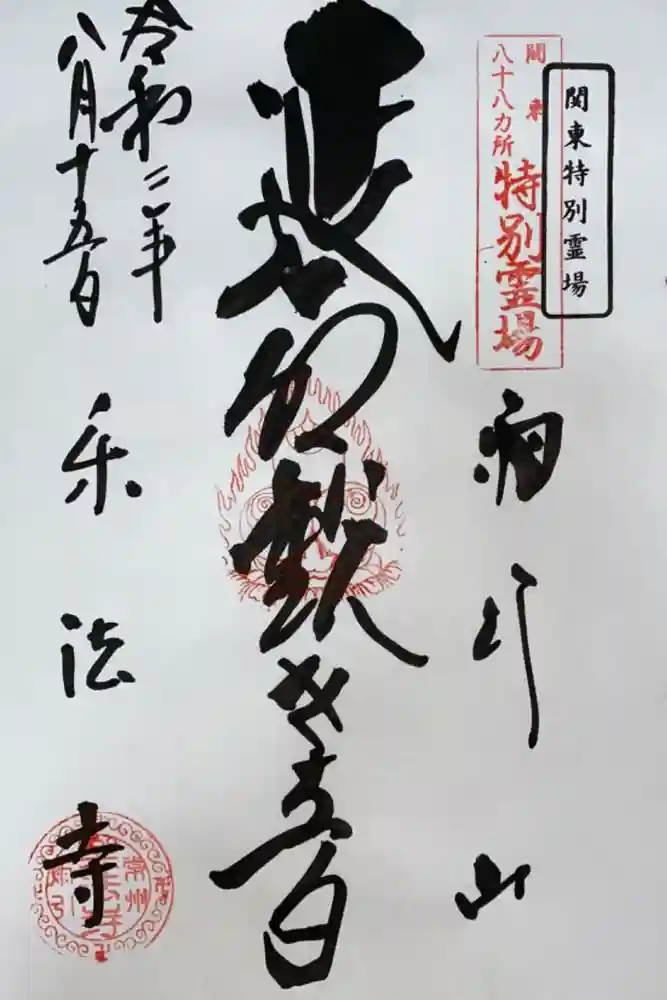 関東特別霊場
関東
八十八カ所
特別霊場
雨引山
観世音
令和二年
八月十五日
楽法寺
常州
雨引